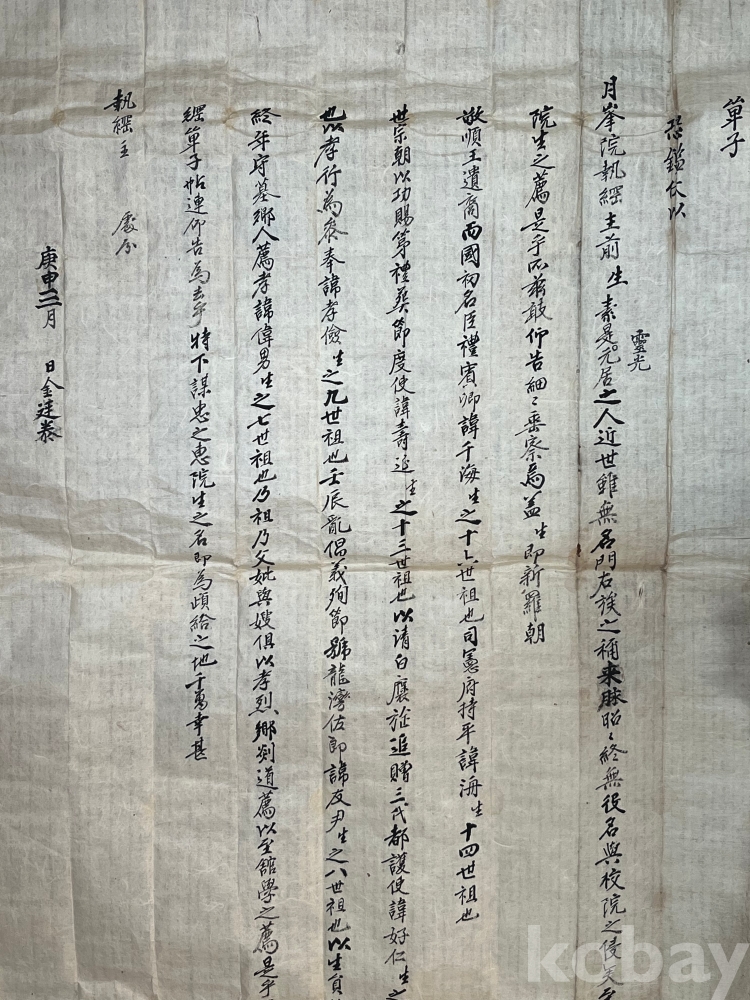 單子
恐鑑伏以
月峯院執綱主前 生素是元居之人近世雖無名門右族之稱来脉昭〻終無役名與校院之侵矣至
靈光
院生之薦是乎所玆敢仰告細〻垂察焉盖 生即新羅朝
敬順王遺裔而國初名臣禮賓卿諱千海 生之十六世祖也司憲府持平諱海 生十四世祖也
世宗朝以功賜第禮葬節度使諱壽延 生之十三世祖也以清白廉旌追贈三代都護使諱好仁 生之
也以孝行為参奉諱孝儉 生之九世祖也壬辰亂倡義殉節號龍灣佐郎諱友尹 生之八世祖也以生員
終年守墓鄉人薦孝諱偉男 生之七世祖也乃祖乃父妣與嫂俱以孝烈鄉剡道薦以至舘學之薦是乎
綱單子帖連仰告為去乎特下謀忠之惠院生之名即為頉給之地千萬幸甚
執綱主 處分
庚申三月 日金廷泰
kobay